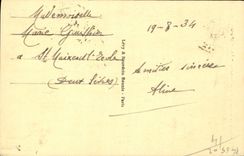 Mademoiselle
Marie
a St Maixent
(Deux Sèvres)
Lévy & Neurdein Réunis - Paris
19-8-34
Amitiés sincères
Aline